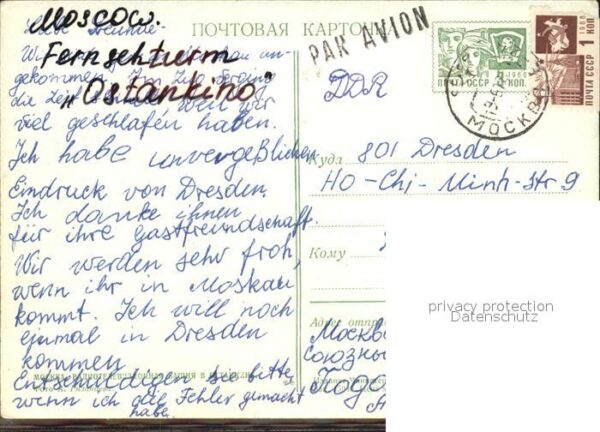 Moscow.
Fernsehturm
„Ostankino"
ПОЧТОВАЯ КАРТОЧКА
PAR AVION
1966
1 КОП.
ПОЧТА СССР 1 КОП.
1966
МОСКВА
Liebe Freunde
Wir
gekommen. Im Zug verging
die Zeit weil wir
viel geschlafen haben.
Ich habe unvergeßlichen
Eindruck von Dresden.
Ich danke ihnen
für ihre Gastfreundschaft.
Wir werden sehr froh,
wenn ihr in Moskau
kommt. Ich will noch
einmal in Dresden
kommen
Entschuldigen sie bitte,
wenn ich die Fehler gemacht
habe.
DDR
Куда 801 Dresden
HO-Chi-Minh-str 9
Кому
Адрес отправ
Москва
союзны
Года
privacy protection
Datenschutz